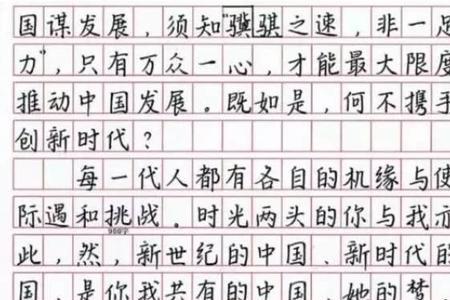 国谋发展，须知“骥骐之速，非一足
力”，只有万众一心，才能最大限度
推动中国发展。既如是，何不携手
创新时代？
每一代人都有各自的机缘与使
际遇和挑战。时光两头的你与我亦
900字
此，然，新世纪的中国、新时代的
国，是你我共有的中国，她的梦，